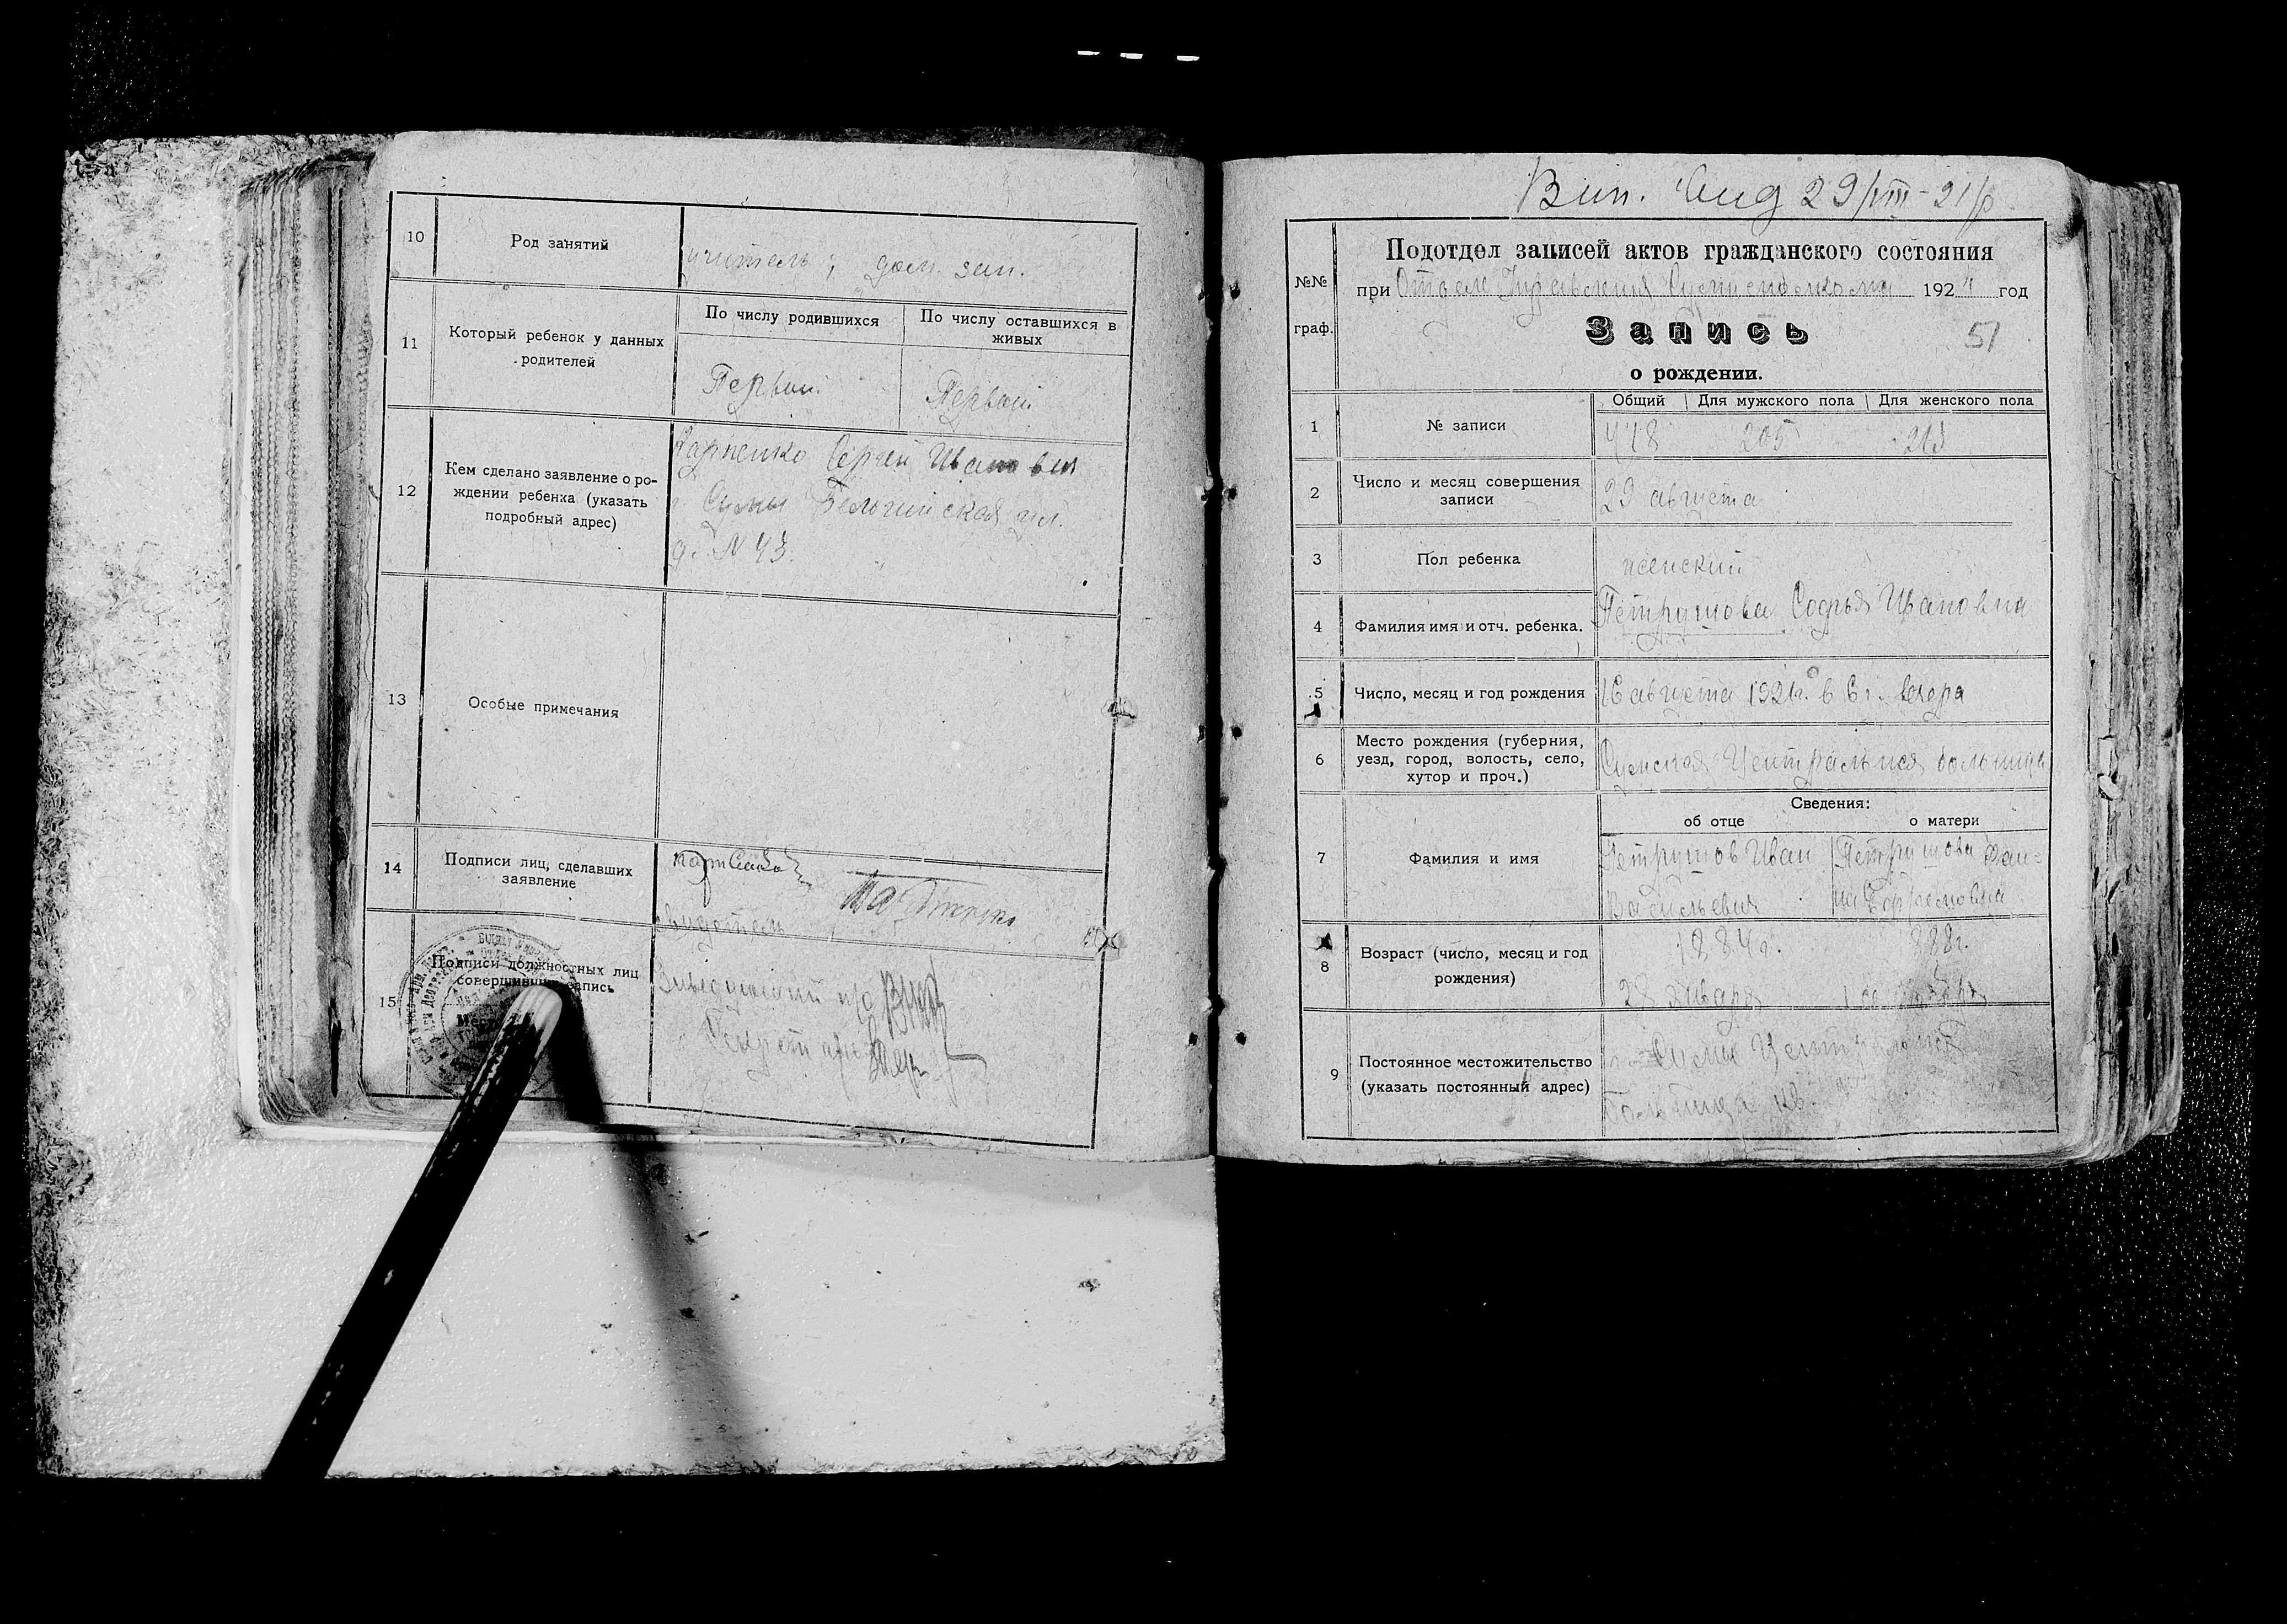 10
Род занятий
учитель; дом. зан.
11
Который ребенок у данных
родителей
По числу родившихся
По числу оставшихся в
живых
Первый
Первый
12
Кем сделано заявление о ро-
ждении ребенка (указать
подробный адрес)
Сергей Иванович
Сумы ул.
д. № 43.
13
Особые примечания
14
Подписи лиц, сделавших
заявление
15
Подписи должностных лиц
совершивших запись
Секретарь
29/VIII-21 р
№№
граф.
Подотдел записей актов гражданского состояния
при Отделе Управления 1921 год
Запись
51
о рождении.
1
№ записи
Общий
Для мужского пола
Для женского пола
418
205
213
2
Число и месяц совершения
записи
29 августа
3
Пол ребенка
женский
4
Фамилия имя и отч. ребенка.
Петрушова Софья Ивановна
5
Число, месяц и год рождения
16 августа 1921г. в 6 г. вечера
6
Место рождения (губерния,
уезд, город, волость, село,
хутор и проч.)
Сумская Центральная больница
7
Фамилия и имя
Сведения:
об отце
о матери
Петрушов Иван
Васильевич
Петрушова
8
Возраст (число, месяц и год
рождения)
1884г.
28 января
888г.
9
Постоянное местожительство
(указать постоянный адрес)
г. Сумы Центральная
больница кв.